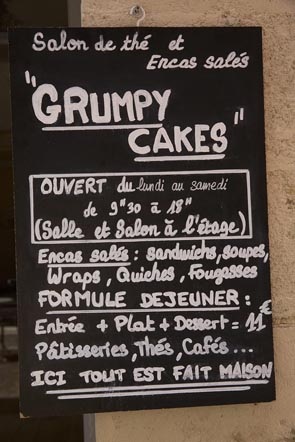 Salon de thé et
Encas salés
"GRUMPY
CAKES"
OUVERT du lundi au samedi
de 9H30 à 18H
(Salle et Salon à l'étage)
Encas salés : sandwichs, soupes,
Wraps, Quiches, Fougasses
FORMULE DEJEUNER :
Entrée + Plat + Dessert = 11€
Pâtisseries, Thés, Cafés ...
ICI TOUT EST FAIT MAISON